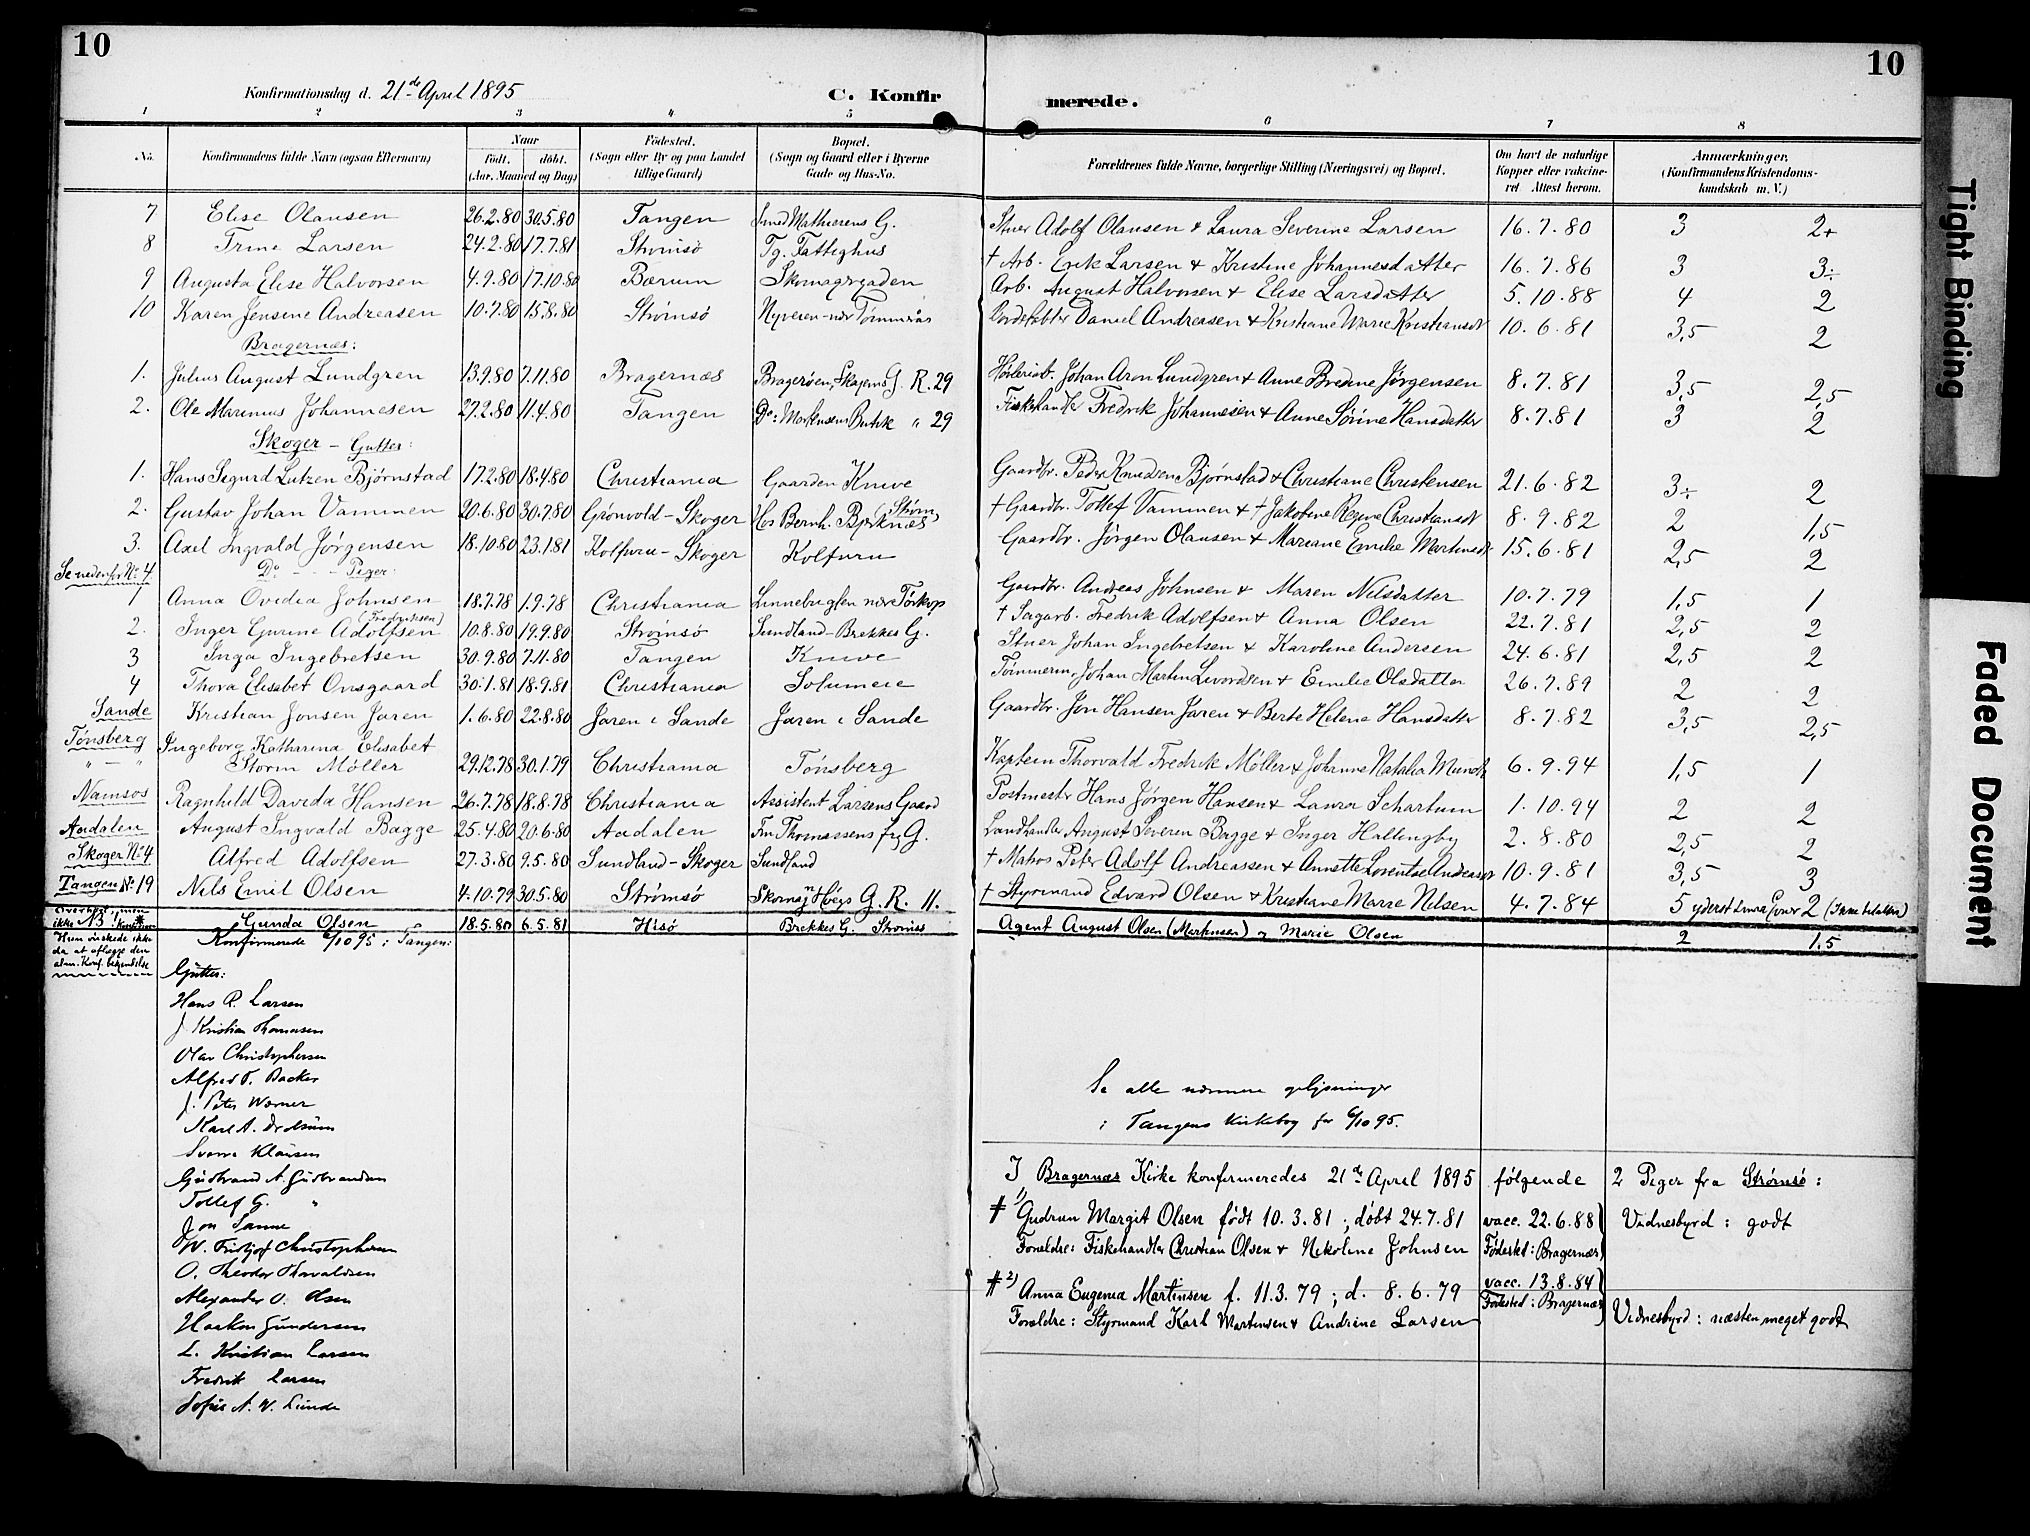 10
10
Konfirmationsdag d. 21de April 1895
C. Konfirmerede.
1 2 3 4 5 6 7 8
No. Konfirmandens fulde Navn (ogsaa Efternavn) Naar født. døbt. (Aar. Maaned og Dag) Fødested. (Sogn eller By og paa Landet tillige Gaard) Bopæl. (Sogn og Gaard eller i Byerne Gade og Hus-No. Forældrenes fulde Navne, borgerlige Stilling (Næringsvei) og Bopæl. Om havt de naturlige Kopper eller vaccineret. Attest herom. Anmærkninger, (Konfirmandens Kristendomskundskab m. V.)
7 Elise Olausen 26.2.80 30.5.80 Tangen G. Stuer Adolf Olausen & Laura Severine Larsen 16.7.80 3 2+
8 Trine Larsen 24.2.80 17.7.81 Strømsø Tg. Fattighus † Arb. Erik Larsen & Kristine Johannesdatter 16.7.86 3 3÷
9 Augusta Elise Halvorsen 4.9.80 17.10.80 Bærum Skomagrgaden Arb. August Halvorsen & Elise Larsdatter 5.10.88 4 2
10 Karen Jensine Andreasen 10.7.80 15.8.80 Strømsø Nyveien - nær Tømmerås Daniel Andreasen & Kristiane Marie Kristiansdt 10.6.81 3,5 2
Bragernæs:
1. Julius August Lundgren 13.9.80 7.11.80 Bragernæs Bragerøen, Skagems G. R. 29 Johan Aron Lundgren & Anne Bredine Jørgensen 8.7.81 3,5 2,5
2. Ole Marinius Johannesen 27.2.80 11.4.80 Tangen Do: Mortensens Butik " 29 Fiskehandler Fredrik Johannesen & Anne Sørine Hansdatter 8.7.81 3 2
Skoger - Gutter:
1. Hans Sigurd Lutzen Bjørnstad 17.2.80 18.4.80 Christiania Gaarden Knive Gaardbr. Peder Knudsen Bjørnstad & Christiane Christensen 21.6.82 3÷ 2
2. Gustav Johan Vammen 20.6.80 30.7.80 Grønvold - Skoger Hos Bernh. Bjerknæs (Strøm) † Gaardbr. Tollef Vammen & † Jakobine Regine Christiansdt 8.9.82 2 1,5
3. Axel Ingvald Jørgensen 18.10.80 23.1.81 Kolfuru - Skoger Kolfuru Gaardbr. Jørgen Olausen & Mariane Emilie Martinsdt 15.6.81 2,5 2
Se nedenfor No 4. Do - - - Piger:
1 Anna Ovidia Johnsen 18.7.78 1.9.78 Christiania Linnebuglen nær Torkop Gaardbr. Andreas Johnsen & Maren Nilsdatter 10.7.79 1,5 1
2. Inger Gurine Adolfsen (Fredriksen) 10.8.80 19.9.80 Strømsø Sundland - Brekkes G. † Sagarb. Fredrik Adolfsen & Anna Olsen 22.7.81 2,5 2
3 Inga Ingebretsen 30.9.80 7.11.80 Tangen Knive Stuer Johan Ingebretsen & Karoline Andersen 24.6.81 2,5 2
4 Thora Elisabet Onsgaard 30.1.81 18.9.81 Christiania Solumeie Tømmerm. Johan Martin Livordsen & Emilie Olsdatter 26.7.89 2 2
Sande Kristian Jonsen Jaren 1.6.80 22.8.80 Jaren i Sande Jaren i Sande Gaardbr. Jon Hansen Jaren & Berte Helene Hansdatter 8.7.82 3,5 2,5
Tønsberg Ingeborg Katharina Elisabet
" - " Storm Møller 29.12.78 30.1.79 Christiania Tønsberg Kaptein Thorvald Fredrik Møller & Johanne Natalia Mundt 6.9.94 1,5 1
Namsos Ragnhild Davida Hansen 26.7.78 18.8.78 Christiania Assistent Larsens Gaard Postmester Hans Jørgen Hansen & Laura Schartum 1.10.94 2 2
Aadalen August Ingvald Bagge 25.4.80 20.6.80 Aadalen Fru Thomassens G. Landhandler August Severin Bagge & Inger Hallingby 2.8.80 2,5 2
Skoger No 4 Alfred Adolfsen 27.3.80 9.5.80 Sundland - Skoger Sundland † Matros Peter Adolf Andreassen & Annette Lorentse Andreasdt 10.9.81 3,5 3
Tangen No 19 Nils Emil Olsen 4.10.79 30.5.80 Strømsø Skomag Høegs G. R. 11. † Styrmand Edvard Olsen & Kristiane Marie Nilsen 4.7.84 5 yderst 2
Gunda Olsen 18.5.80 6.5.81 Hisø Brekkes G. Strømsø Agent August Olsen (Martinsen) og Marie Olsen 2 1,5
Hun ønskede ikke
da at aflægge den
alm. Konf. bekjendelse
Konfirmerede 6/10 95 i Tangen:
Gutter:
Hans R. Larsen
J. Kristian Thomasen
Olav Christophersen
Alfred T. Backer
J. Peter Werner
Karl A.
Sverre Klausen
Gudbrand A. Gudbrandsen
Tollef G. "
Jon Sanne
W. Fridtjof Christophersen
O. Theodor Thorvaldsen
Alexander O. Olsen
Haakon Gundersen
L. Kristian Larsen
Fredrik Larsen
Sofus A. W. Lunde
Se alle nærmere oplysninger
i Tangens Kirkebog for 6/10 95.
I Bragernæs Kirke konfirmeredes 21de April 1895 følgende 2 Piger fra Strømsø:
# 1) Gudrun Margit Olsen født 10.3.81; døbt 24.7.81 vacc. 22.6.88 Vidnesbyrd: godt
Forældre: Fiskehandler Christian Olsen & Nikoline Johnsen Fødested: Bragernæs
# 2) Anna Eugenia Martinsen f. 11.3.79; d. 8.6.79 vacc. 13.8.84
Forældre: Styrmand Karl Martinsen & Andrine Larsen Fødested: Bragernæs Vidnesbyrd: næsten meget godt
Tight Binding
Faded Document